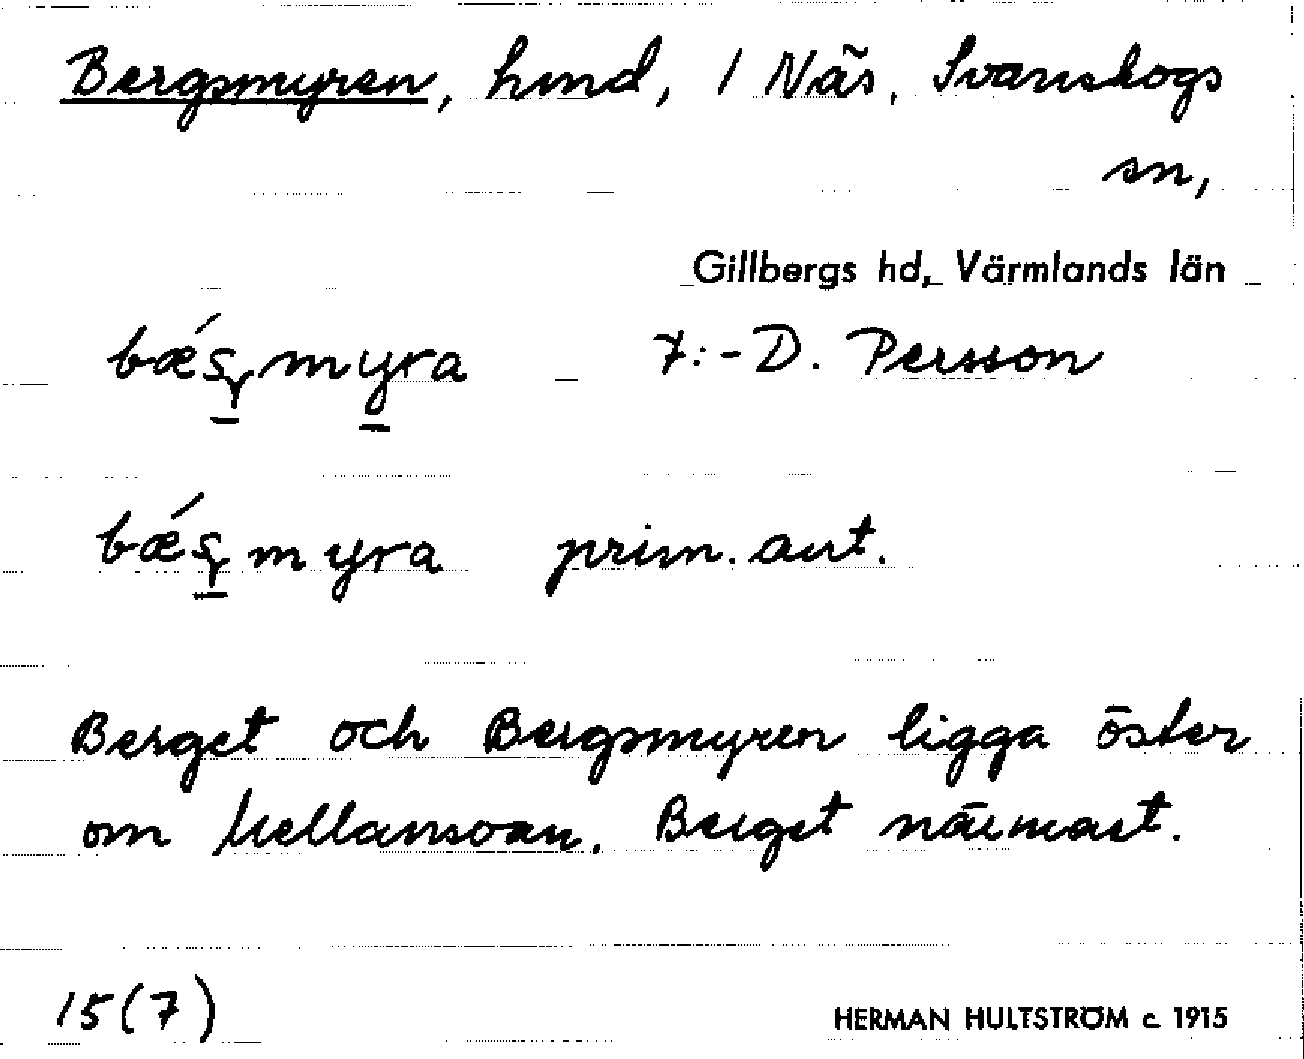 Bergsmyren, hmd, 1 Näs, Svanskogs
sn,
Gillbergs hd, Värmlands län
bǽşmyra 7:- D. Persson
bǽşmyra prim. aut.
Berget och Bergsmyren ligga öster
om Mellansvan. Berget närmast.
15(7)
HERMAN HULTSTRÖM c. 1915